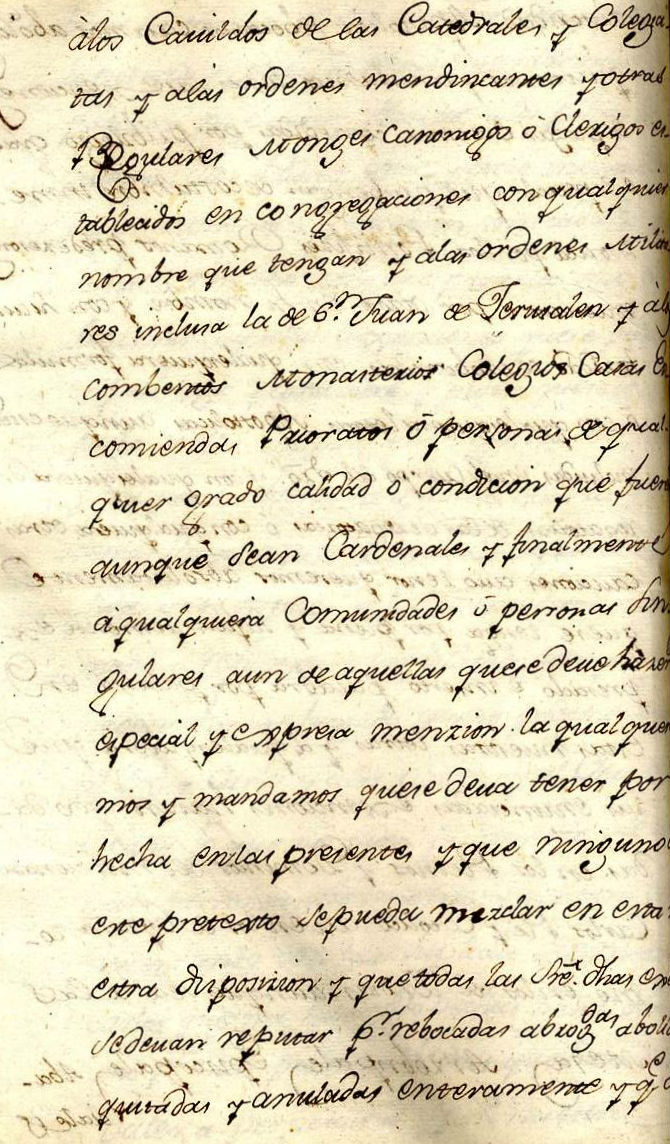 àlos Cauildos de las Catedrales y Colegia-
tas y alas ordenes mendincantes y otras
Regulares Monges canonigos ò Clerigos es-
tablecidos en congregaciones con qualquier
nombre que tengan y alas ordenes Milita
res inclusa la de Sn. Juan de Jerusalen y àl
combentos Monasterios Colegios Casas En
comiendas Prioratos ò personas de qual-
quier grado calidad o condicion que fuere
aunque Sean Cardenales y finalmente
à qualquiera Comunidades ò personas Sin
gulares aun de aquellas quese deue hazer
especial y expresa menzion la qual quere
mos y mandamos quese deua tener por
hecha enlas presentes y que ninguno
este pretexto sepueda mezclar en esta
estra disposizion y quetodas las dhas
sedeuan reputar pr. rebocadas abrogas aboli
quitadas y anuladas enteramente y qe